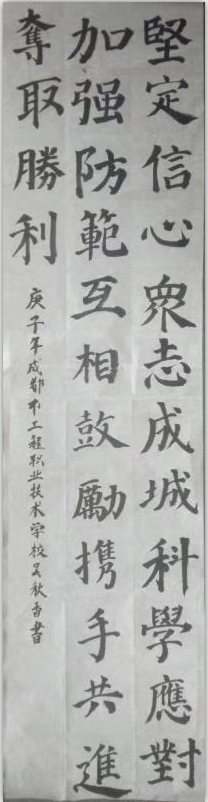 堅定信心衆志成城科學應對
加强防範互相鼓勵携手共進
奪取勝利
庚子年成都市工程职业技术学校吴秋香書